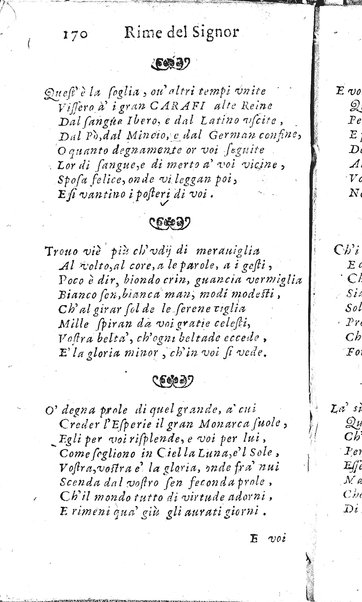 170 Rime del Signor
Quest'è la soglia, ou'altri tempi vnite
Vissero à i gran CARAFI alte Reine
Dal sangue Ibero, e dal Latino vscite,
Dal Pò, dal Mincio, e dal German confine,
O quanto degnamente or voi seguite
Lor di sangue, e di merto a' voi vicine,
Sposa felice, onde vi leggan poi,
E si vantino i posteri di voi.
Trouo viè più ch'vdij di merauiglia
Al volto, al cor, a le parole, a i gesti,
Poco è dir, biondo crin, guancia vermiglia
Bianco sen, bianca man, modi modesti,
Ch'al girar sol de le serene ciglia
Mille spiran da voi gratie celesti,
Vostra beltà, ch'ogni beltade eccede,
E' la gloria minor, ch'in voi si vede.
O' degna prole di quel grande, a' cui
Creder l'Esperie il gran Monarca suole,
Egli per voi risplende, e voi per lui,
Come sogliono in Ciel la Luna, e'l Sole,
Vostra, vostra e' la gloria, onde fra' nui
Scenda dal vostro sen feconda prole,
Ch'il mondo tutto di virtude adorni,
E rimeni qua' giù gli aurati giorni.
E voi
E vo
Qu
Pe
E
Do
A
Va
Ch'i
E
Sol
Pre
Ch
Fo
La' si
Qu
Ch'
Per
Ess
Na
Ch
Di